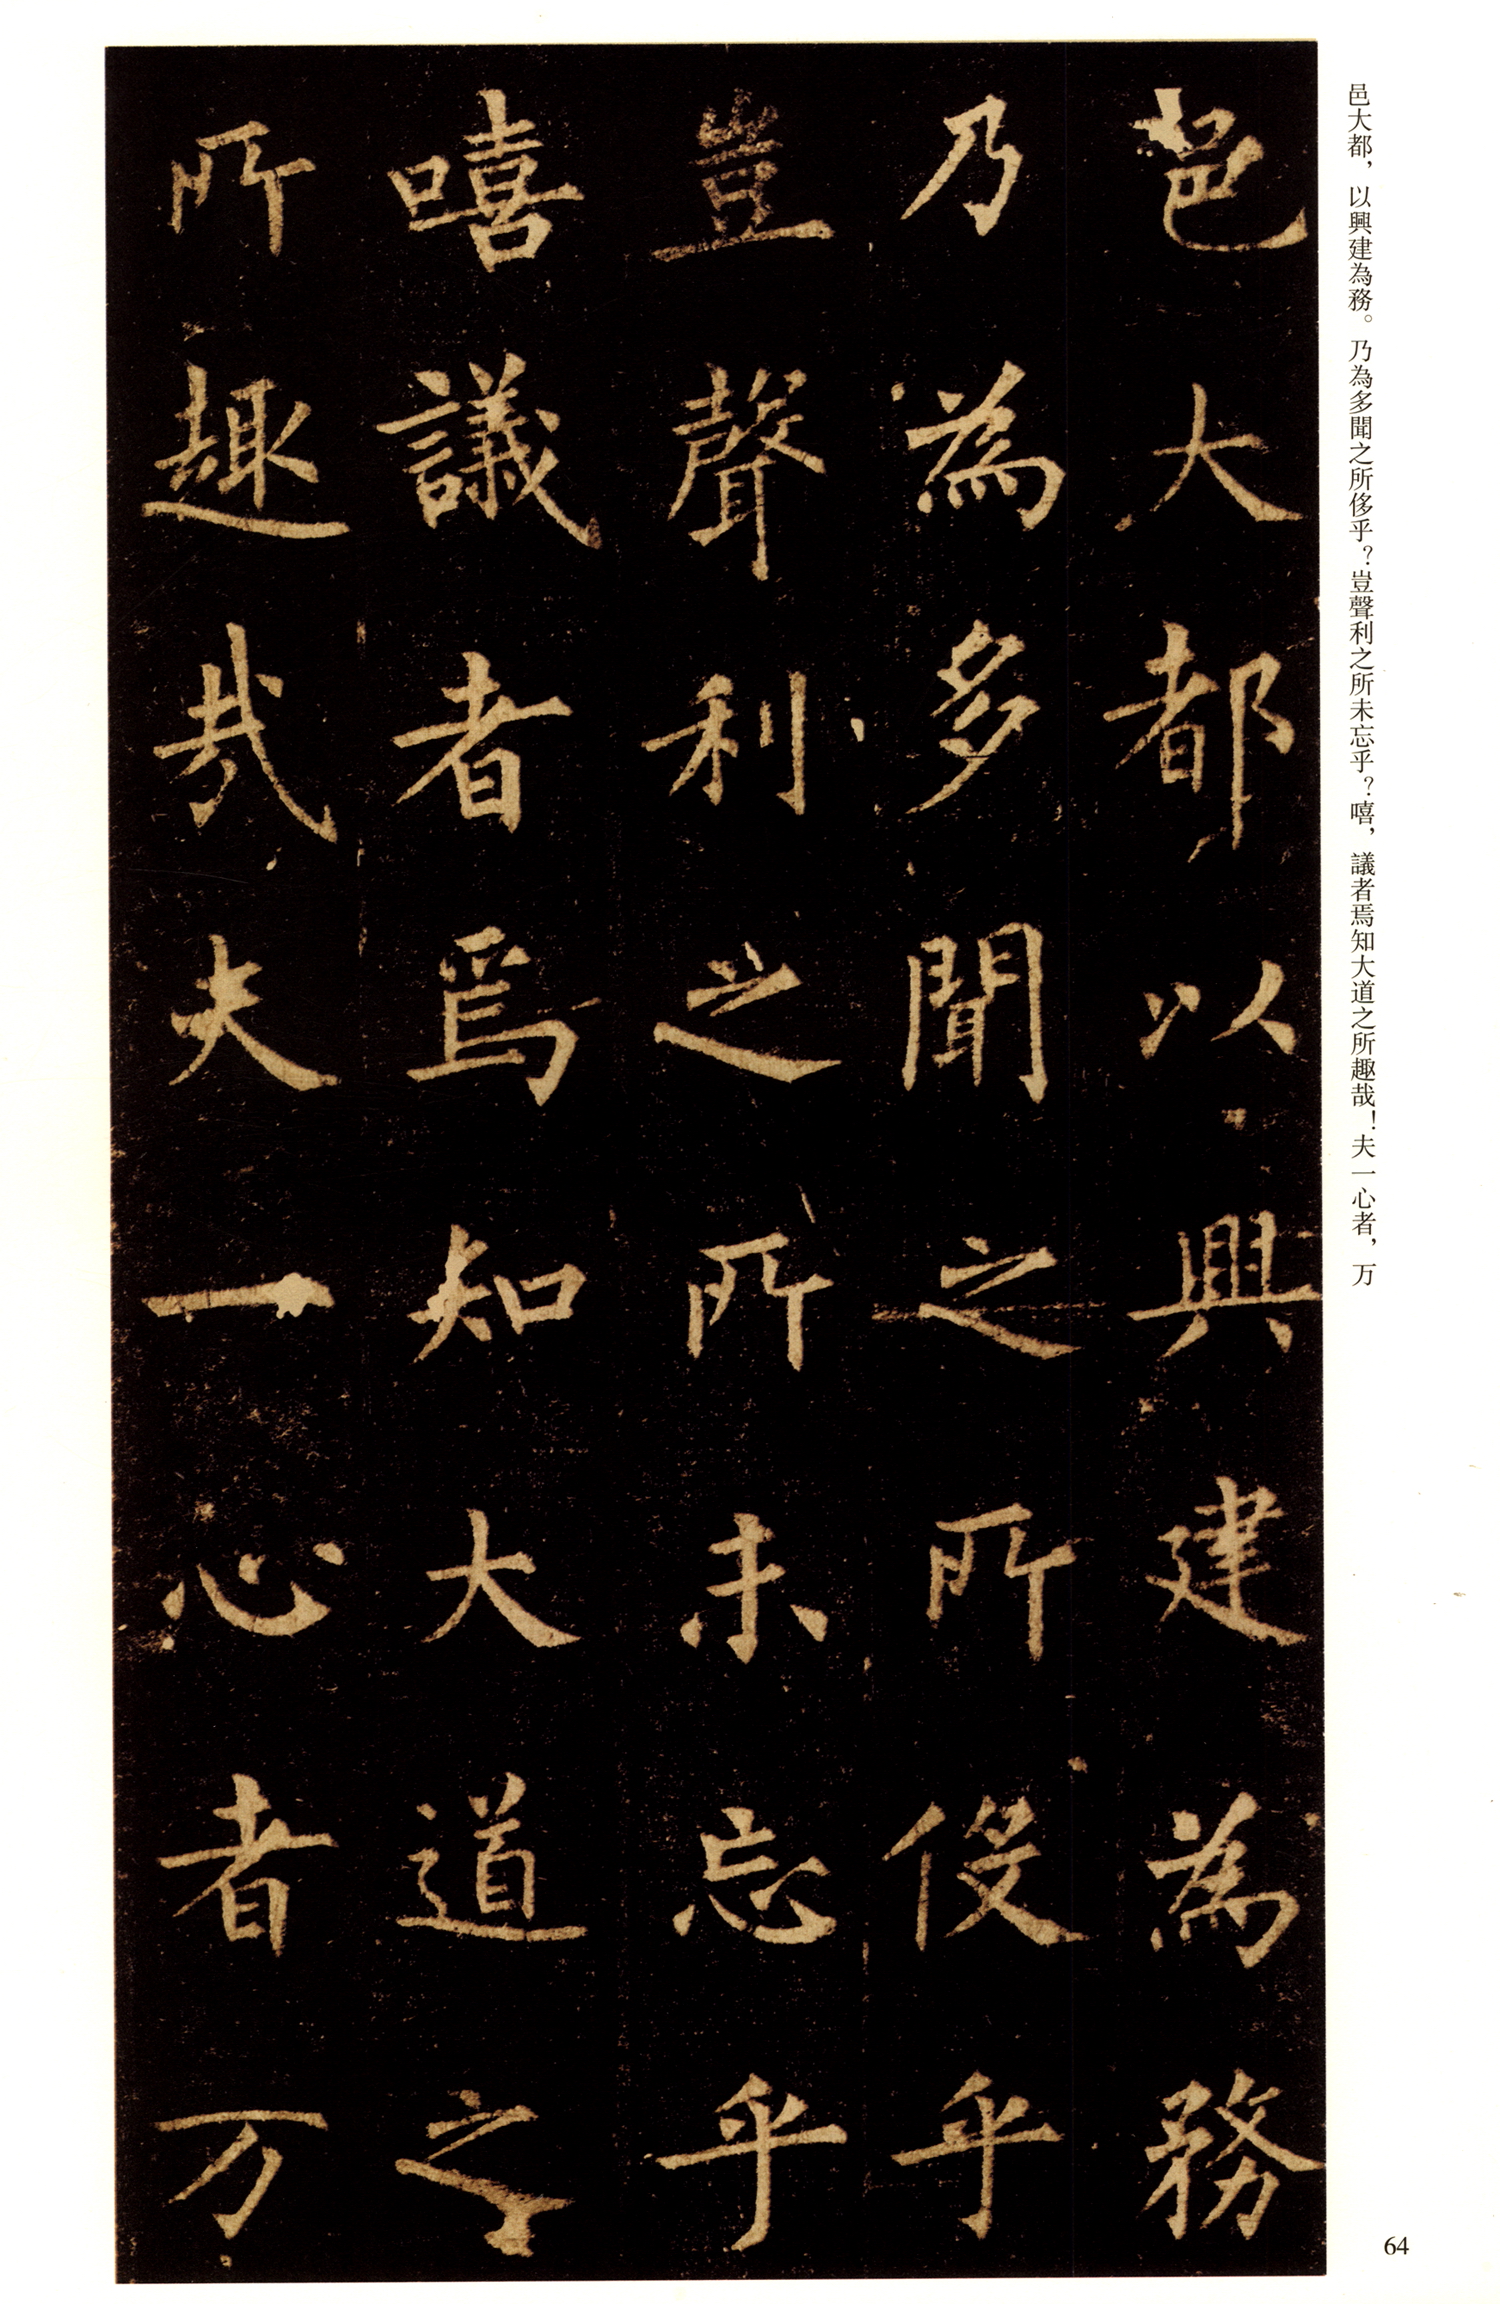 邑大都，以興建為務。乃為多聞之所侈乎？豈聲利之所未忘乎？嘻，議者焉知大道之所趣哉！夫一心者，万
邑大都以興建為務
乃為多聞之所伇乎
豈聲利之所未忘乎
嘻議者焉知大道之
所趣哉夫一心者万
64